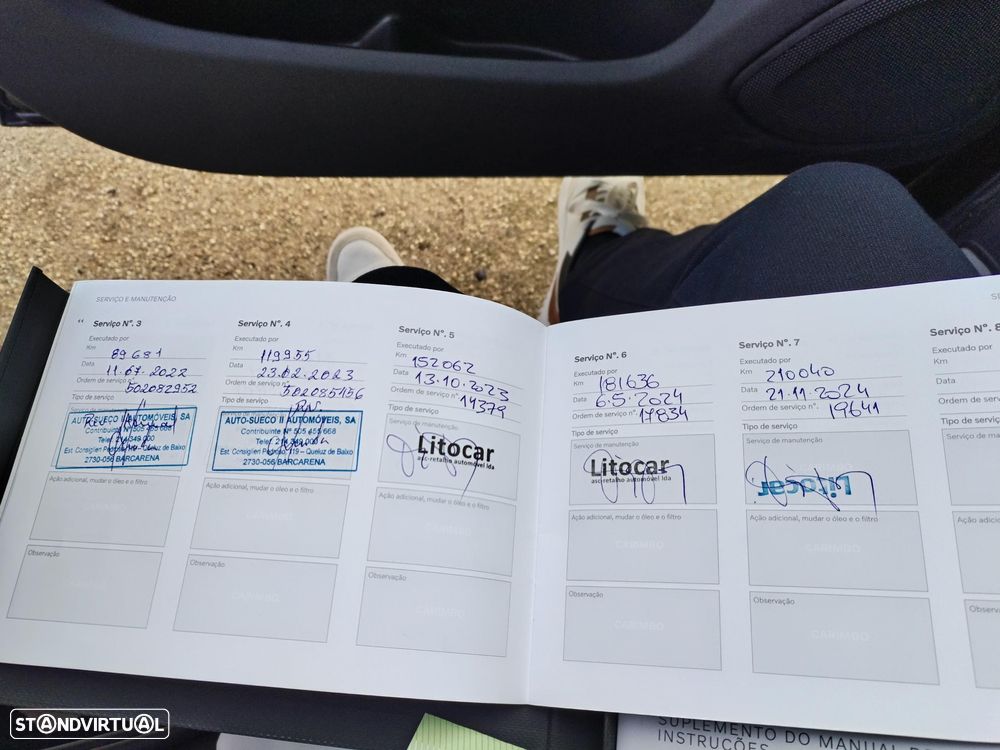 SERVIÇO E MANUTENÇÃO
Serviço Nº. 3
Executado por
Km 89681
Data 11.07.2022
Ordem de serviço nº. 502082952
Tipo de serviço
AUTO-SUECO II AUTOMÓVEIS, SA
Contribuinte Nº 505 455 668
2730-056 BARCARENA
Ação adicional, mudar o óleo e o filtro
Observação
Serviço Nº. 4
Executado por
Km 119955
Data 23.02.2023
Ordem de serviço nº.
Tipo de serviço
AUTO-SUECO II AUTOMÓVEIS, SA
Contribuinte Nº 505 455 668
Est. Consiglieri Pedroso, 119 – Queluz de Baixo
2730-056 BARCARENA
Ação adicional, mudar o óleo e o filtro
Observação
Serviço Nº. 5
Executado por
Km 152062
Data 13.10.2023
Ordem de serviço nº. 14379
Tipo de serviço
Serviço de manutenção
Litocar
asc-retalho automóvel lda
Ação adicional, mudar o óleo e o filtro
CARIMBO
Observação
CARIMBO
Serviço Nº. 6
Executado por
Km 181636
Data 6.5.2024
Ordem de serviço nº. 17834
Tipo de serviço
Serviço de manutenção
Litocar
asc-retalho automóvel lda
Ação adicional, mudar o óleo e o filtro
CARIMBO
Observação
CARIMBO
Serviço Nº. 7
Executado por
Km 210040
Data 21.11.2024
Ordem de serviço nº. 19641
Tipo de serviço
Serviço de manutenção
Litocar
Ação adicional, mudar o óleo e o filtro
CARIMBO
Observação
CARIMBO
Serviço Nº. 8
Executado por
Km
Data
Ordem de serviço
Tipo de serviço
Serviço de manutenção
Ação adicional, m
Observação
SUPLEMENTO DO MANUAL
INSTRUÇÕES
STANDVIRTUAL